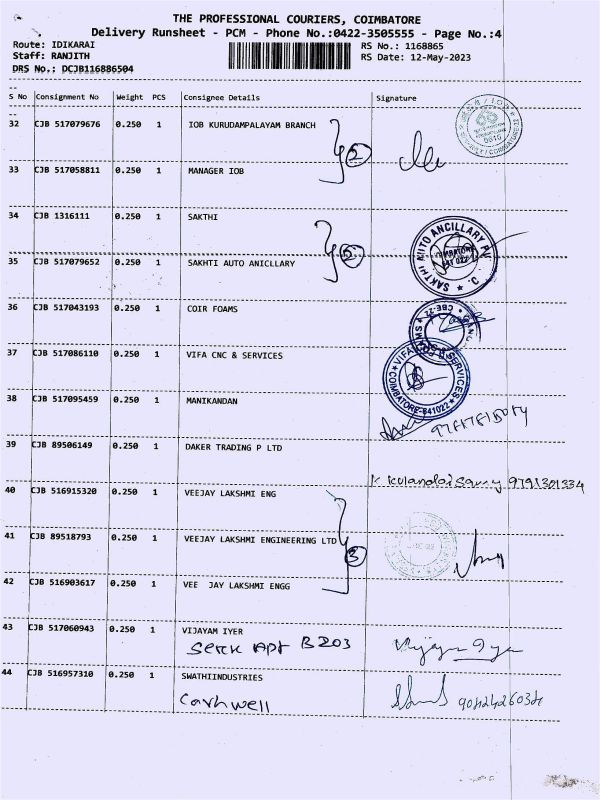 THE PROFESSIONAL COURIERS, COIMBATORE
Delivery Runsheet - PCM - Phone No.:0422-3505555 - Page No.:4
Route: IDIKARAI RS No.: 1168865
Staff: RANJITH RS Date: 12-May-2023
DRS No.: DCJB116886504
S No Consignment No Weight PCS Consignee Details Signature
32 CJB 517079676 0.250 1 IOB KURUDAMPALAYAM BRANCH
2
33 CJB 517058811 0.250 1 MANAGER IOB
34 CJB 1316111 0.250 1 SAKTHI
SAKTHI AUTO ANCILLARY
35 CJB 517079652 0.250 1 SAKHTI AUTO ANICLLARY
36 CJB 517043193 0.250 1 COIR FOAMS
CBE-22
37 CJB 517086110 0.250 1 VIFA CNC & SERVICES
VIFA CNC & SERVICES
COIMBATORE-641022
38 CJB 517095459 0.250 1 MANIKANDAN
39 CJB 89506149 0.250 1 DAKER TRADING P LTD
K Kulandaisamy 9791301334
40 CJB 516915320 0.250 1 VEEJAY LAKSHMI ENG
41 CJB 89518793 0.250 1 VEEJAY LAKSHMI ENGINEERING LTD
3
42 CJB 516903617 0.250 1 VEE JAY LAKSHMI ENGG
43 CJB 517060943 0.250 1 VIJAYAM IYER
Apt B203 Vijaya Iyer
44 CJB 516957310 0.250 1 SWATHIINDUSTRIES
Carhwell